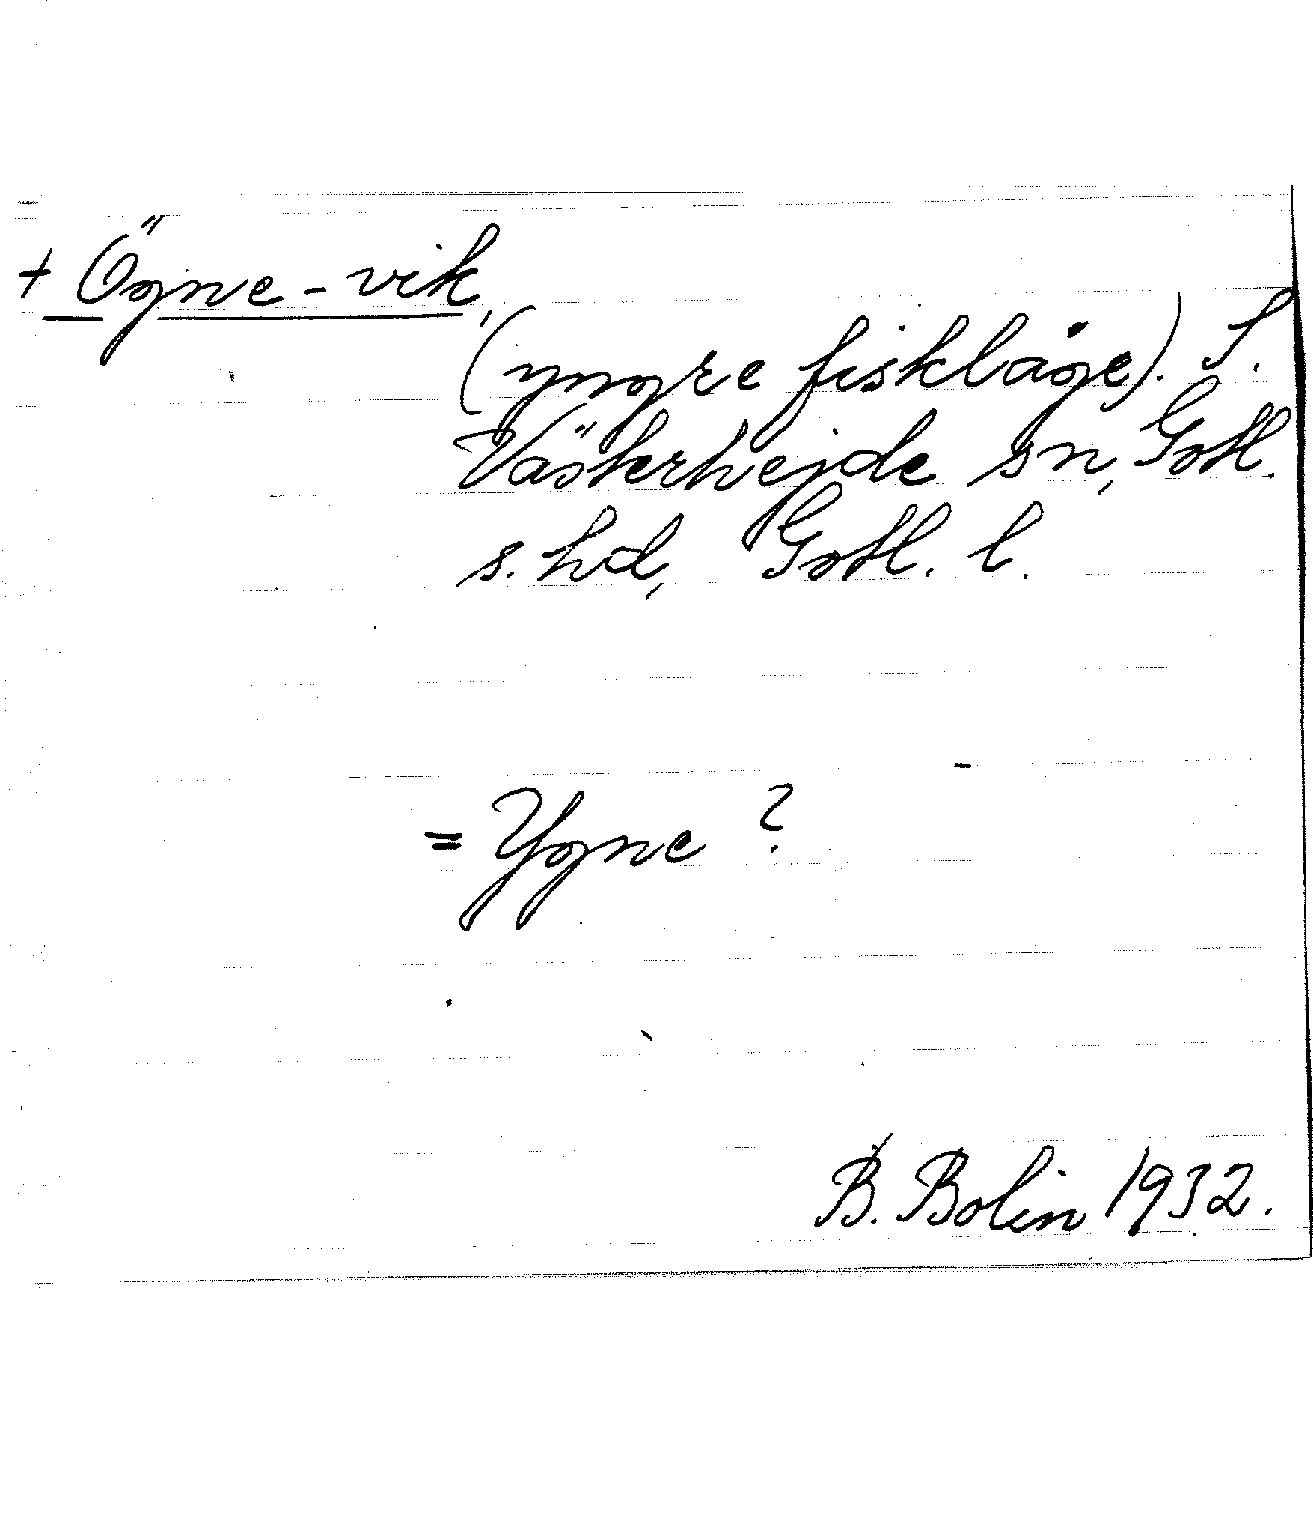 + Ögne-vik,
(yngre fiskläge). I.
Västerhejde sn, Gotl.
s. hd, Gotl. l.
= Ygne ?
B. Bolin 1932.